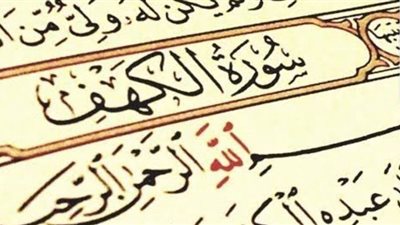 يكن له ولي من ال
سورة الكهف
بسم الله الرحمن الرحيم
عبده الك